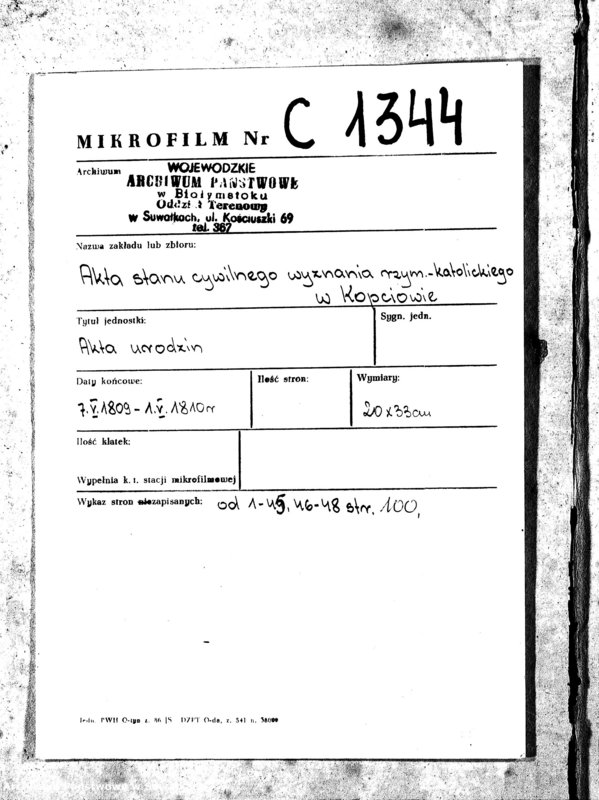 MIKROFILM Nr C 1344
Archiwum
WOJEWODZKIE
ARCHIWUM PAŃSTWOWE
w Białymstoku
Oddział Terenowy
w Suwałkach, ul. Kościuszki 69
tel. 367
Nazwa zakładu lub zbioru:
Akta stanu cywilnego wyznania rzym.-katolickiego
w Kopciowie
Tytuł jednostki:
Sygn. jedn.
Akta urodzin
Daty końcowe:
Ilość stron:
Wymiary:
7.V.1809 - 1.V.1810 r
20 x 33 cm
Ilość klatek:
Wypełnia k. t. stacji mikrofilmowej
Wykaz stron niezapisanych: od 1-45, 46-48 str. 100,